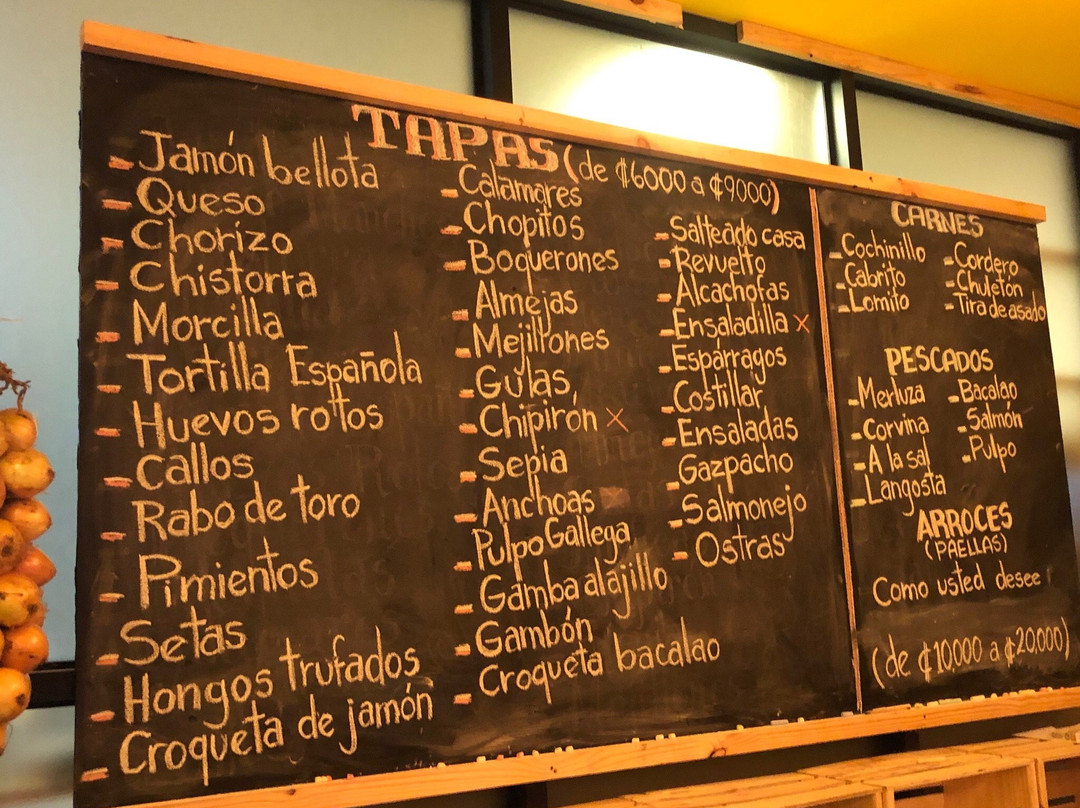 TAPAS (de ₡6000 a ₡9000)
- Jamón bellota
- Queso
- Chorizo
- Chistorra
- Morcilla
- Tortilla Española
- Huevos rottos
- Callos
- Rabo de toro
- Pimientos
- Setas
- Hongos trufados
- Croqueta de jamón
- Calamares
- Chopitos
- Boquerones
- Almejas
- Mejillones
- Gulas
- Chipirón x
- Sepia
- Anchoas
- Pulpo Gallega
- Gamba al ajillo
- Gambón
- Croqueta bacalao
- Salteado casa
- Revuelto
- Alcachofas
- Ensaladilla x
- Espárragos
- Costillar
- Ensaladas
- Gazpacho
- Salmonejo
- Ostras
CARNES
- Cochinillo
- Cabrito
- Lomito
- Cordero
- Chuletón
- Tira de asado
PESCADOS
- Merluza
- Corvina
- A la sal
- Langosta
- Bacalao
- Salmón
- Pulpo
ARROCES
(PAELLAS)
Como usted desee
(de ₡10.000 a ₡20.000)